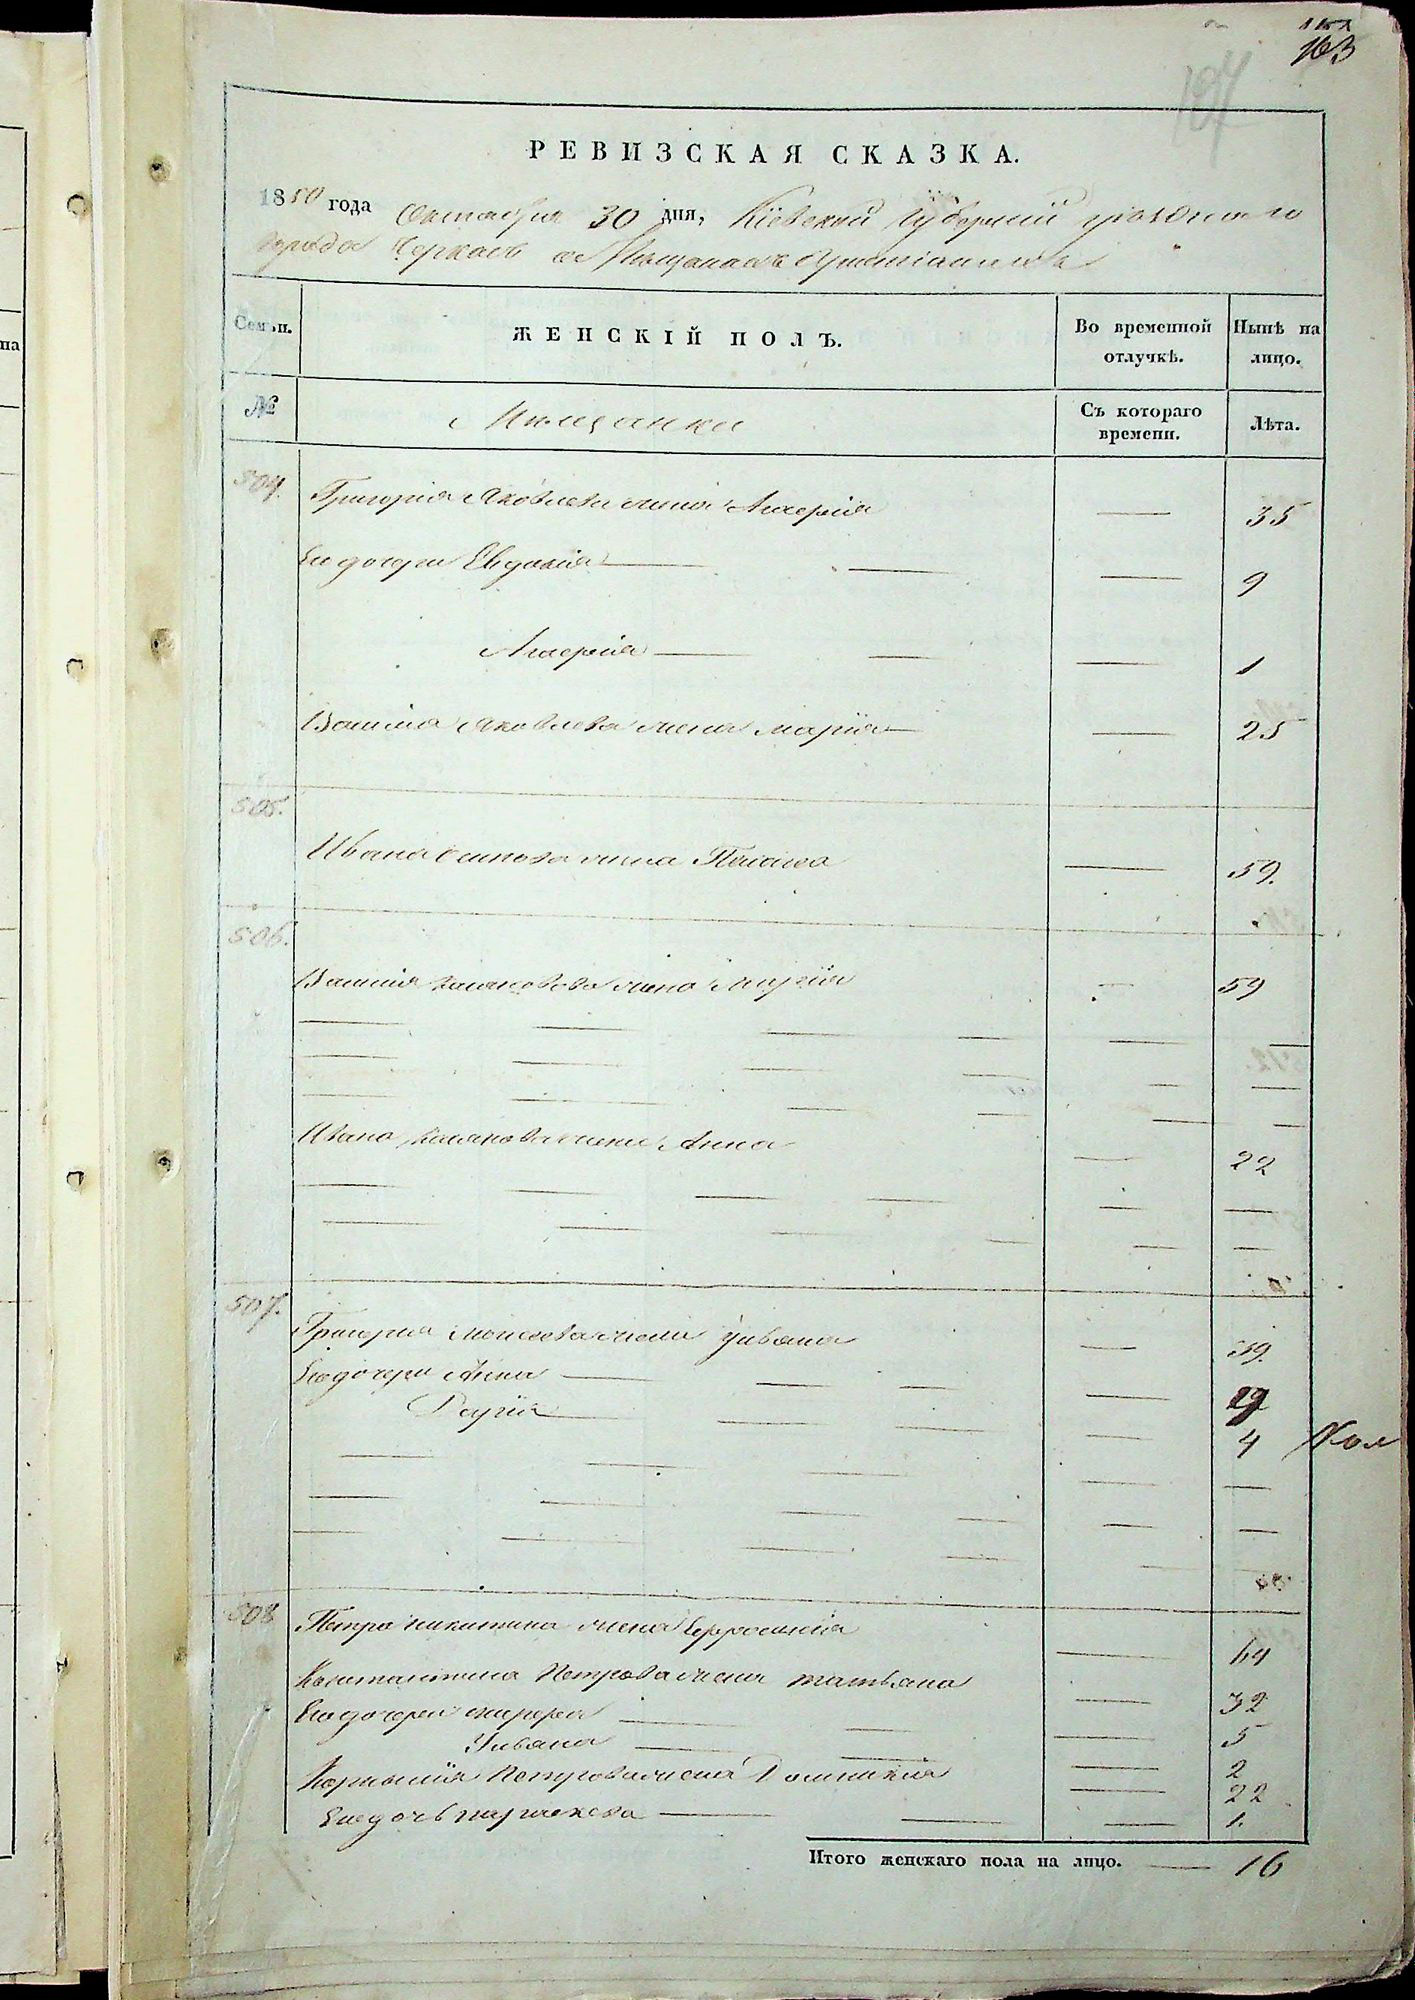 163
187
РЕВИЗСКАЯ СКАЗКА.
1850 года Октября 30 дня, Кіевской Губерніи уѣзднаго
города Черкасъ о Мѣщанахъ Христіанахъ
Семьи. ЖЕНСКІЙ ПОЛЪ. Во временной отлучкѣ. Нынѣ на лицо.
№ Мѣщанки Съ котораго времени. Лѣта.
504. Григорія Яковлева жена Гликерія 35
Его дочери Евдокія 9
Гликерія 1
Василія Яковлева жена Марія 25
505.
Ивана жена 59.
506.
Василія жена Марія 59
Ивана жена Анна 22
507.
Григорія Моисеева жена Ульяна 39.
Его дочери Анна 19
Дарія 4
508 Петра Никитина жена Ефросинія 64
Константина Петрова жена Татьяна 32
Его дочери 5
Ульяна 2
Петрова жена Домникія 22
Его дочь Параскева 1.
Итого женскаго пола на лицо. 16